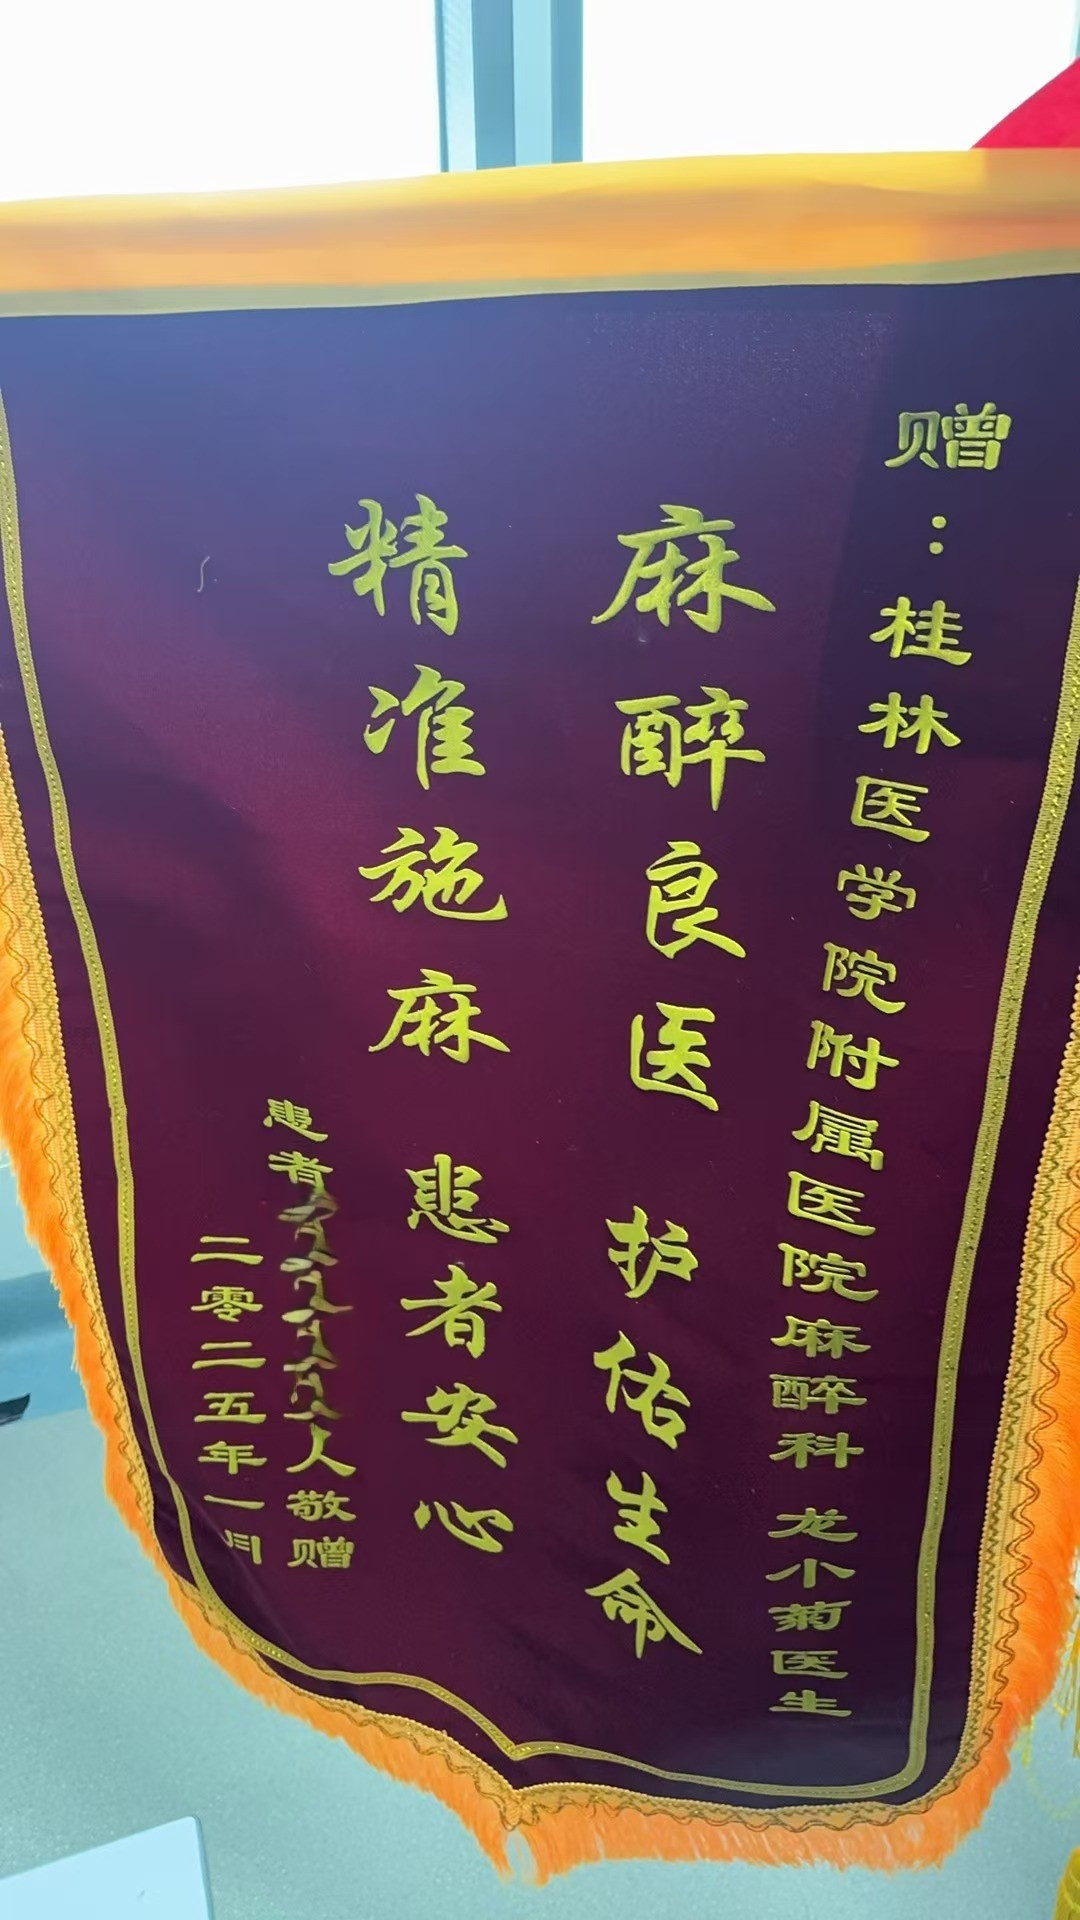 赠：桂林医学院附属医院麻醉科 龙小菊医生
麻醉良医 护佑生命
精准施麻 患者安心
患者 人敬赠
二零二五年一月